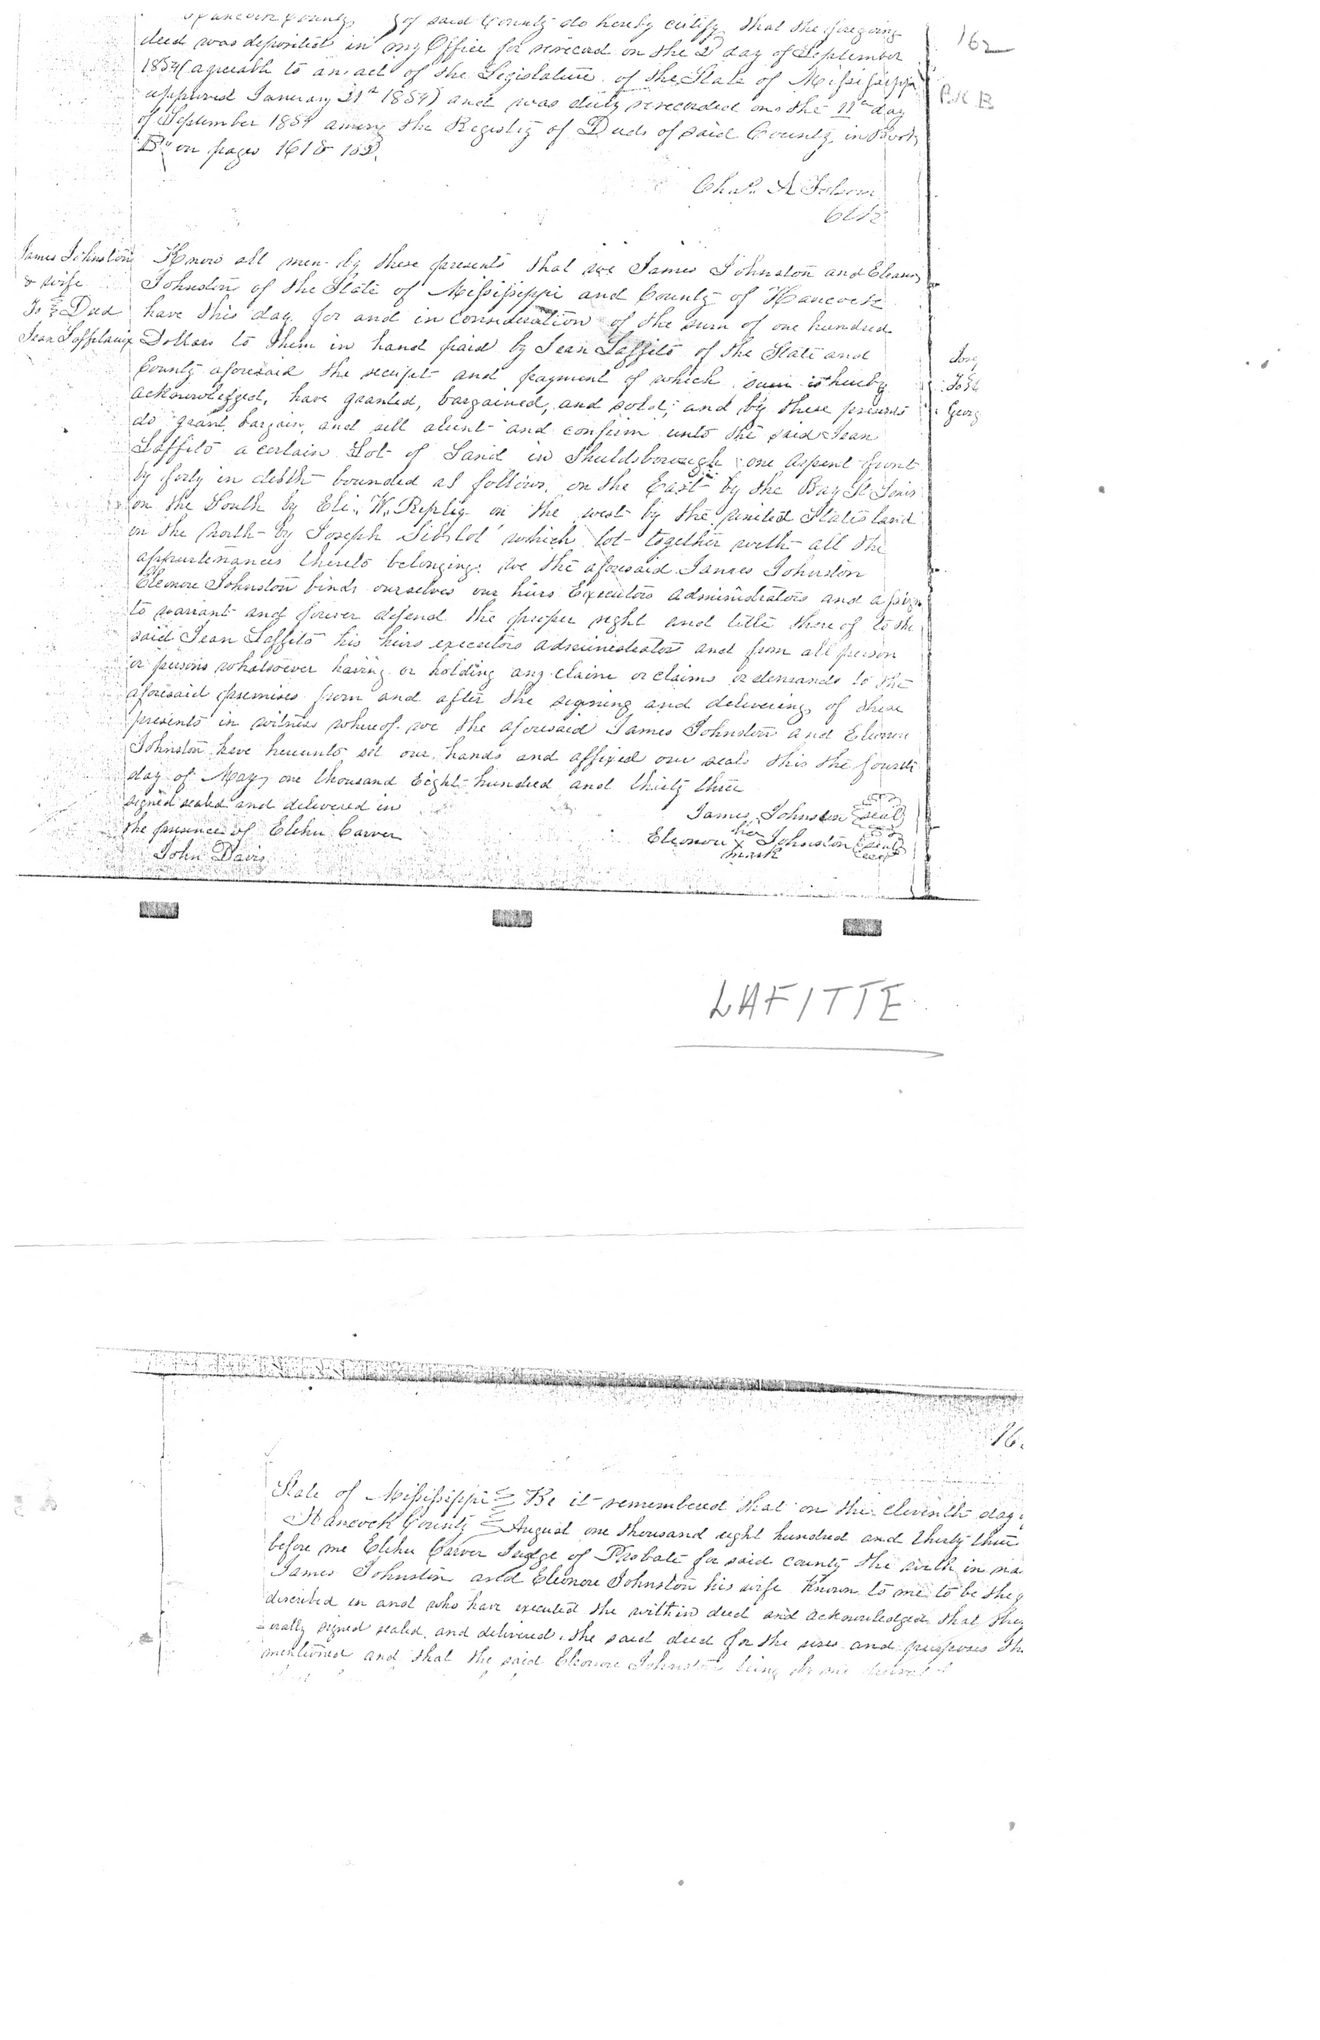 Hancock County, of said County do hereby certify that the foregoing
deed was deposited in my Office for rerecord on the day of September
185 (agreeable to an act of the Legislature of the State of Missisippi
approved January 21st 1854) and was duly rerecorded on the 11th day
of September 1854 among the Registry of Deeds of said County, in Book
"B" on pages 161 &
Chas. A Folsom
Clk
162
BK B
James Johnston
& wife
To Deed
Jean
Know all men by these presents that we James Johnston and Eleanor
Johnston of the State of Missisippi and County of Hancock
have this day for and in consideration of the sum of one hundred
Dollars to them in hand paid by Jean Laffito of the State and
County aforesaid the receipt and payment of which sum is hereby
acknowledged, have granted, bargained, and sold, and by these presents
do grant bargain and sell alient and confirm unto the said Jean
Laffito a certain Lot of Land in Shieldsborough one arpent front
by forty in debth bounded as follows, on the East by the Bay St. Louis
on the South by Eli. W. Repley on the west by the united States land
on the North by Joseph which lot together with all the
appurtenances thereto belonging. we the aforesaid James Johnston
Eleonore Johnston binds ourselves our heirs Executors administrators and assigns
to warrant and forever defend the proper right and title thereof to the
said Jean Laffito his heirs executors administrators and from all person
or persons whatsoever having or holding any claim or claims or demands to the
aforesaid premises from and after the signing and delivering of these
presents in witness whereof we the aforesaid James Johnston and Eleonore
Johnston have hereunto set our hands and affixed our seals this the fourth
day of May one thousand Eight hundred and thirty three
signed sealed and delivered in
the presence of Elehu Carver
John Davis
James Johnston seal
her
Eleonore X Johnston seal
mark
LAFITTE
State of Missisippi Be it remembered that on the eleventh day
Hancock County August one thousand eight hundred and thirty three
before me Elehu Carver Judge of Probate for said county the with in na
James Johnston and Eleonore Johnston his wife known to me to be the
discribed in and who have executed the within deed and acknowledged that they
erally signed sealed and delivered the said deed for the uses and purposes the
mentioned and that the said Eleonore Johnston being by me